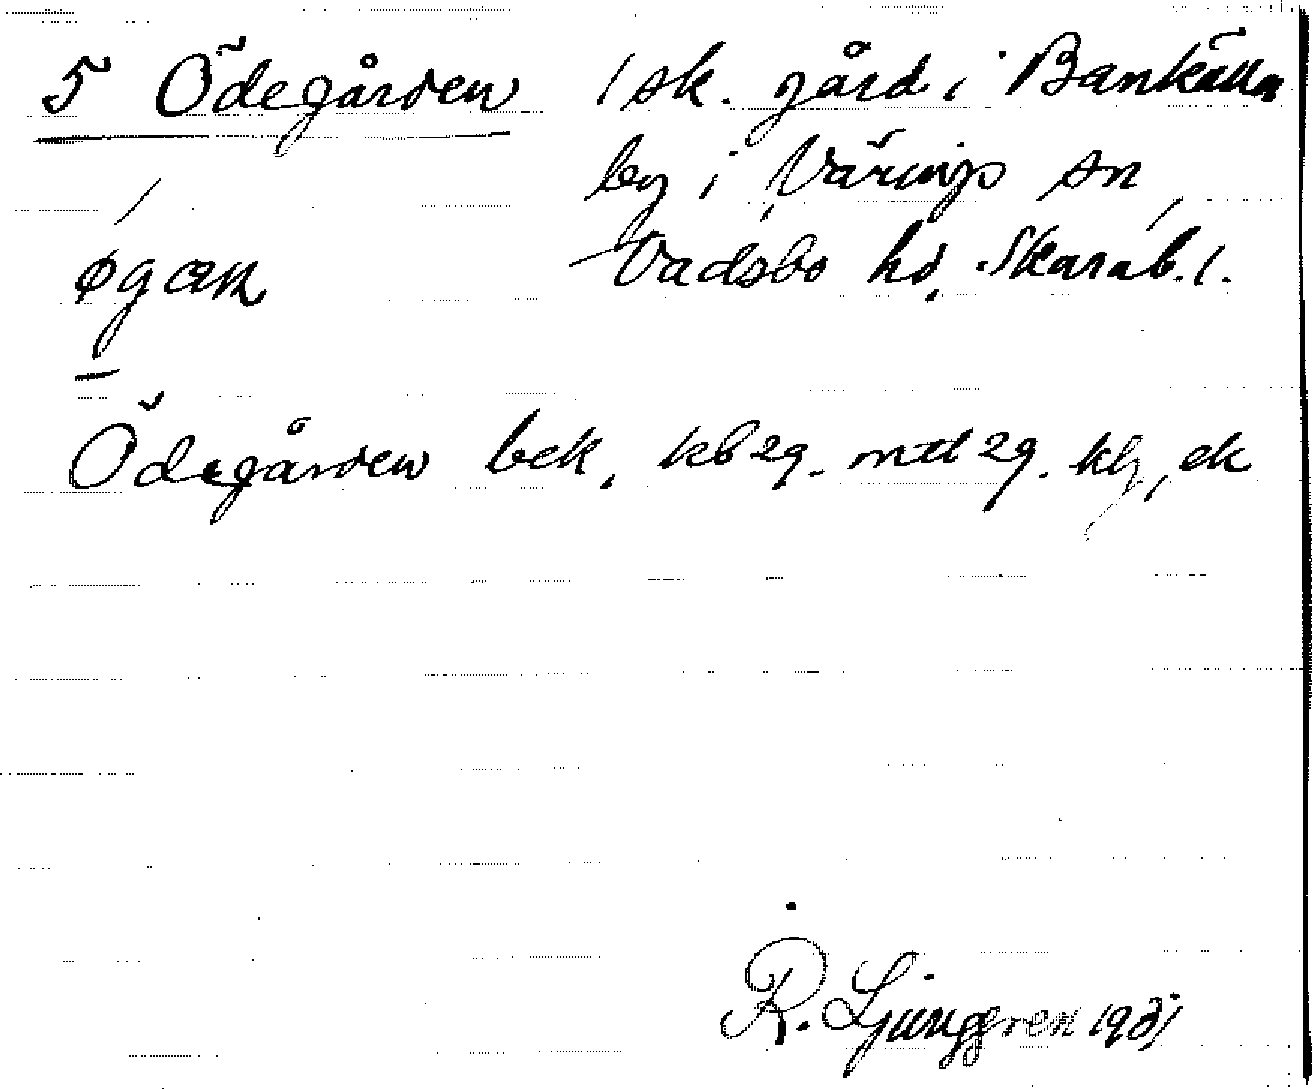 5 Ödegården 1 sk. gård i Bankälla
by i Värings sn
øgaɶn Vadsbo hd, Skarab. l.
Ödegården bek, kb 2g. mtl 2g. klj, ek
R. Ljunggren 1931